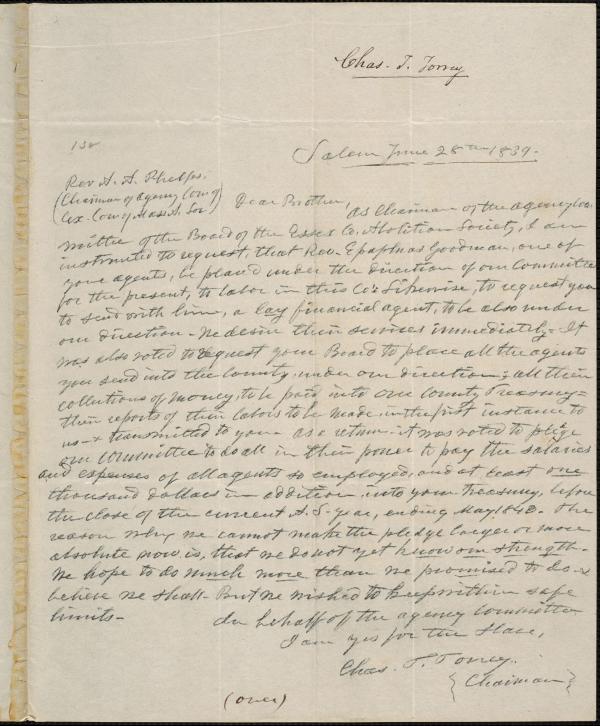 Chas. T. Torrey
132
Salem June 28th 1839.
Rev. A. A. Phelps.
(Chairman of Agency Com of)
(Ex. Com of Mass A. Soc)
Dear Brother,
As Chairman of the agency Com-
mittee of the Board of the Essex Co. Abolition Society, I am
instructed to request, that Rev. Epaphras Goodman, one of
your agents, be placed under the direction of our Committee
for the present, to labor in this Co. & likewise, to request you
to send with him, a lay financial agent, to be also under
our direction - We desire their services immediately - It
was also voted to request your Board to place all the agents
you send into the County, under our direction; all their
collections of money, to be paid into our County Treasury =
their reports of their labors to be made, in the first instance to
us - & transmitted to you - As a return - it was voted to plege
our Committee to do all in their power to pay the salaries
and expenses of all agents so employed, and at least one
thousand dollars in addition, into your Treasury, before
the close of the current A. S. year, ending May 1840. The
reason why we cannot make the pledge larger or more
absolute now is, that we do not yet know our strength -
We hope to do much more than we promised to do - &
believe we shall - But we wished to keep within safe
limits -
In behalf of the agency Committee
I am yrs for the Slave,
Chas. T. Torrey.
{ Chairman }
(over)